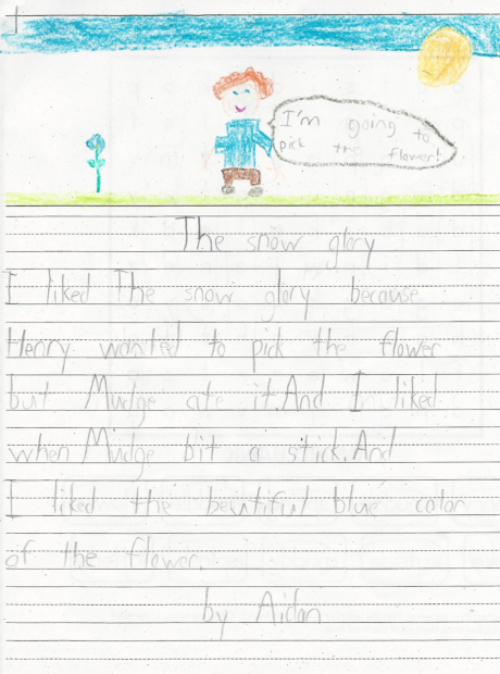 I'm going to
pick the flower!
The snow glory
I liked The snow glory because
Henry wanted to pick the flower
but Mudge ate it. And I liked
when Mudge bit a stick. And
I liked the beutiful blue color
of the flower.
by Aidan